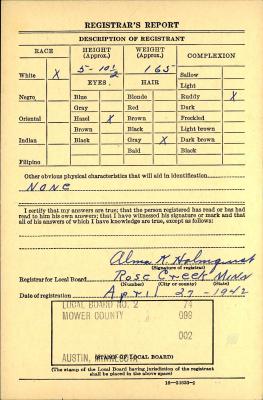 REGISTRAR'S REPORT
DESCRIPTION OF REGISTRANT
RACE HEIGHT (Approx.) WEIGHT (Approx.) COMPLEXION
White X 5-10½ 165 Sallow
EYES HAIR Light
Negro Blue Blonde Ruddy X
Gray Red Dark
Oriental Hazel X Brown Freckled
Brown Black Light brown
Indian Black Gray X Dark brown
Bald Black
Filipino
Other obvious physical characteristics that will aid in identification
None
I certify that my answers are true; that the person registered has read or has had
read to him his own answers; that I have witnessed his signature or mark and that
all of his answers of which I have knowledge are true, except as follows:
Alma K. Holmquist
(Signature of registrar)
Registrar for Local Board Rose Creek Minn
(Number) (City or county) (State)
Date of registration April 27-1942
LOCAL BOARD NO. 2 74
MOWER COUNTY 099
002
AUSTIN, MINNESOTA
(STAMP OF LOCAL BOARD)
(The stamp of the Local Board having jurisdiction of the registrant
shall be placed in the above space)